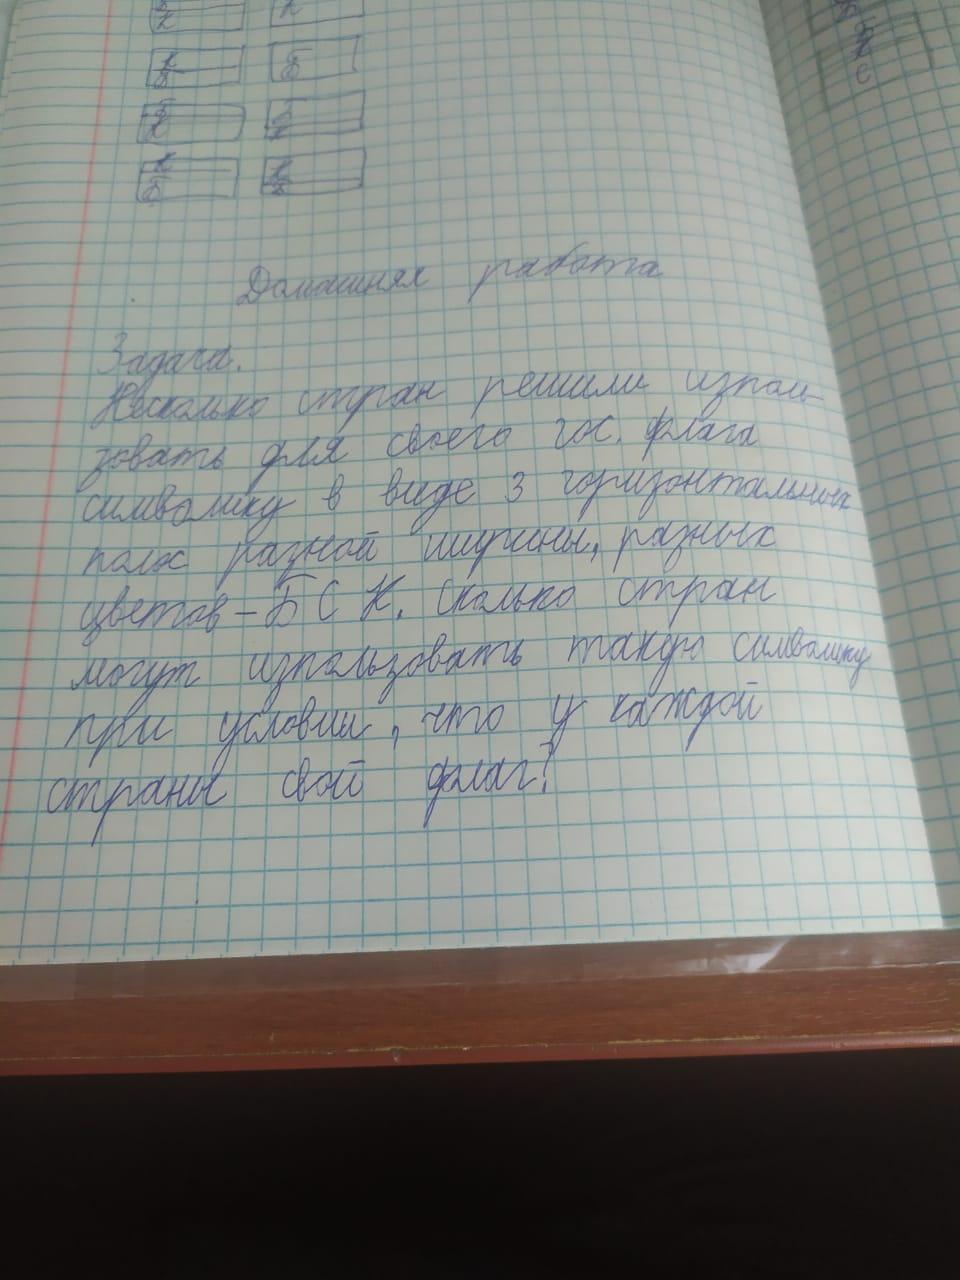 К
К
К
Б
Б
Б
К
Б
К
К
Б
К
С
Домашняя работа
Задача.
Несколько стран решили изполь-
зовать для своего гос. флага
символику в виде 3 горизонтальных
полос разной ширины, разных
цветов – Б С К. Сколько стран
могут изпользовать такую символику
при условии, что у каждой
страны свой флаг?